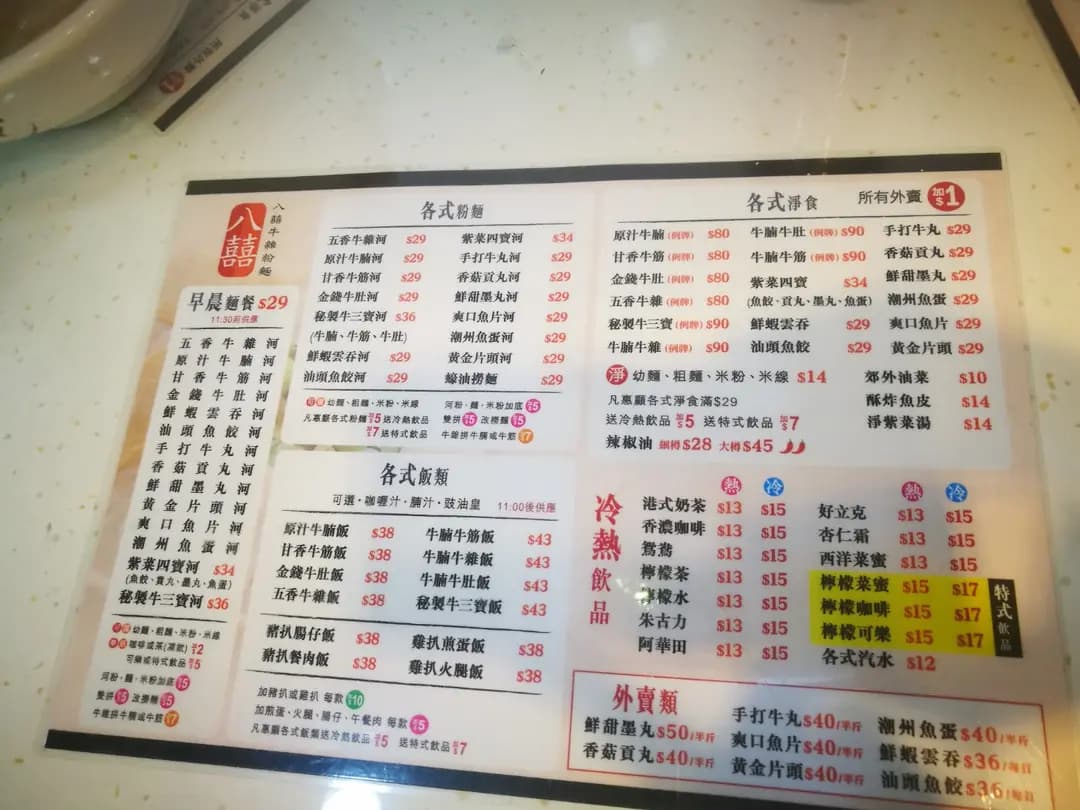 八囍
八囍牛雜粉麵
早晨麵餐 $29
11:30前供應
五香牛雜河
原汁牛腩河
甘香牛筋河
金錢牛肚河
鮮蝦雲吞河
油頭魚餃河
手打牛丸河
香菇貢丸河
鮮甜墨丸河
黃金片頭河
爽口魚片河
潮州魚蛋河
紫菜四寶河 $34
(魚餃、貢丸、墨丸、魚蛋)
秘製牛三寶河 $36
可選 幼麵、粗麵、米粉、米線
咖啡或茶(凍飲) $2
可樂或特式飲品 $5
河粉、麵、米粉加底 $5
雙拼 $5 改撈麵 $5
牛雜拼牛腩或牛筋 $7
各式粉麵
五香牛雜河 $29
原汁牛腩河 $29
甘香牛筋河 $29
金錢牛肚河 $29
秘製牛三寶河 $36
(牛腩、牛筋、牛肚)
鮮蝦雲吞河 $29
汕頭魚餃河 $29
紫菜四寶河 $34
手打牛丸河 $29
香菇貢丸河 $29
鮮甜墨丸河 $29
爽口魚片河 $29
潮州魚蛋河 $29
黃金片頭河 $29
蠔油撈麵 $29
可選 幼麵、粗麵、米粉、米線
凡惠顧各式粉麵加$5送冷熱飲品
加$7送特式飲品
河粉、麵、米粉加底 $5
雙拼 $5 改撈麵 $5
牛雜拼牛腩或牛筋 $7
各式飯類
可選・咖喱汁・腩汁・豉油皇 11:00後供應
原汁牛腩飯 $38
甘香牛筋飯 $38
金錢牛肚飯 $38
五香牛雜飯 $38
牛腩牛筋飯 $43
牛腩牛雜飯 $43
牛腩牛肚飯 $43
秘製牛三寶飯 $43
豬扒腸仔飯 $38
豬扒餐肉飯 $38
雞扒煎蛋飯 $38
雞扒火腿飯 $38
加豬扒或雞扒 每款 $10
加煎蛋、火腿、腸仔、午餐肉 每款 $5
凡惠顧各式飯類送冷熱飲品 $5 送特式飲品 $7
各式淨食
所有外賣 加$1
原汁牛腩 (例牌) $80
甘香牛筋 (例牌) $80
金錢牛肚 (例牌) $80
五香牛雜 (例牌) $80
秘製牛三寶 (例牌) $90
牛腩牛雜 (例牌) $90
牛腩牛肚 (例牌) $90
牛腩牛筋 (例牌) $90
紫菜四寶 $34
(魚餃、貢丸、墨丸、魚蛋)
鮮蝦雲吞 $29
汕頭魚餃 $29
手打牛丸 $29
香菇貢丸 $29
鮮甜墨丸 $29
潮州魚蛋 $29
爽口魚片 $29
黃金片頭 $29
淨 幼麵、粗麵、米粉、米線 $14
凡惠顧各式淨食滿$29
送冷熱飲品 加$5 送特式飲品 加$7
辣椒油 細樽$28 大樽$45
郊外油菜 $10
酥炸魚皮 $14
淨紫菜湯 $14
冷熱飲品
熱 冷
港式奶茶 $13 $15
香濃咖啡 $13 $15
鴛鴦 $13 $15
檸檬茶 $13 $15
檸檬水 $13 $15
朱古力 $13 $15
阿華田 $13 $15
熱 冷
好立克 $13 $15
杏仁霜 $13 $15
西洋菜蜜 $13 $15
檸檬菜蜜 $15 $17
檸檬咖啡 $15 $17
檸檬可樂 $15 $17
各式汽水 $12
特式飲品
外賣類
鮮甜墨丸$50/半斤
香菇貢丸$40/半斤
手打牛丸$40/半斤
爽口魚片$40/半斤
黃金片頭$40/半斤
潮州魚蛋$40/半斤
鮮蝦雲吞$36/每員
汕頭魚餃$36/每員